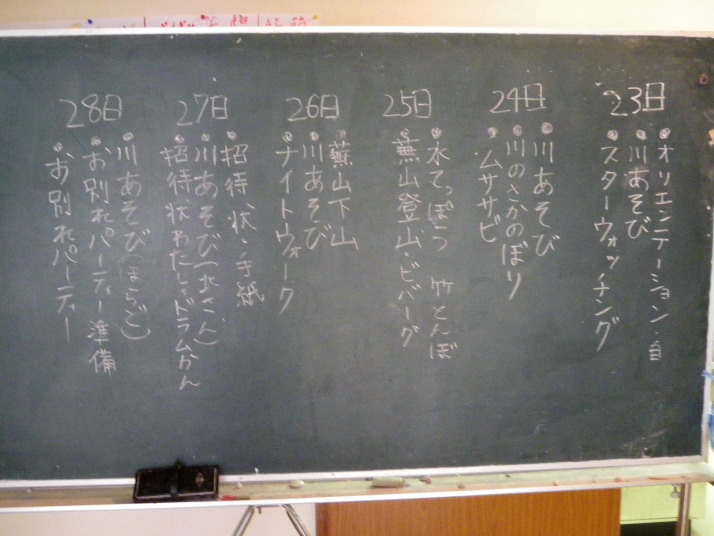 23日
・オリエンテーション・自
・川あそび
・スターウォッチング
24日
・川あそび
・川のさかのぼり
・ムササビ
25日
・水てっぽう 竹とんぼ
・蕪山登山・ビバーグ
26日
・蕪山下山
・川あそび
・ナイトウォーク
27日
・招待状・手紙
・川あそび(北さん)
・招待状わたし・ドラムかん
28日
・川あそび(ほらご)
・お別れパーティー準備
・お別れパーティー